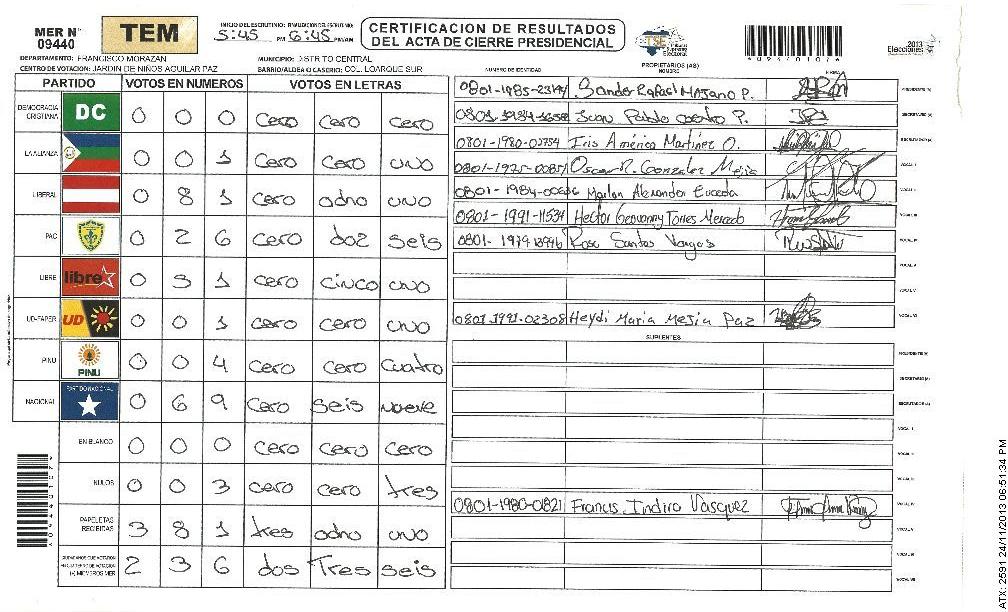 MER N° 09440
TEM
INICIO DEL ESCRUTINIO: FINALIZACION DEL ESCRUTINIO:
5:45 PM 6:45 PM/AM
CERTIFICACION DE RESULTADOS
DEL ACTA DE CIERRE PRESIDENCIAL
TSE Tribunal Supremo Electoral
2013
Elecciones
DEPARTAMENTO: FRANCISCO MORAZAN MUNICIPIO: DISTRITO CENTRAL
CENTRO DE VOTACIÓN: JARDIN DE NIÑOS AGUILAR PAZ BARRIO/ALDEA O CASERIO: COL. LOARQUE SUR
PARTIDO VOTOS EN NUMEROS VOTOS EN LETRAS
DEMOCRACIA CRISTIANA DC 0 0 0 cero cero cero
LA ALIANZA 0 0 1 cero cero uno
LIBERAL 0 8 1 cero odno uno
PAC 0 2 6 cero doz seis
LIBRE libre 0 5 1 cero cinco uno
UD-FAPER UD 0 0 1 cero cero uno
PINU PINU 0 0 4 cero cero cuatro
NACIONAL PARTIDO NACIONAL 0 6 9 cero seis nueve
EN BLANCO 0 0 0 cero cero cero
NULOS 0 0 3 cero cero tres
PAPELETAS RECIBIDAS 3 8 1 tres odno uno
2 3 6 dos Tres seis
NUMERO DE IDENTIDAD PROPIETARIOS (AS) NOMBRE FIRMA
Sander Rafael Majano P. PRESIDENTE (A)
Juan Pablo P. SECRETARIO (A)
0801-1980-02754 Iris América Martinez O. ESCRUTADOR (A)
Oscar R. Gonzalez Mejia VOCAL I
Marlon Alexander Euceda VOCAL II
0801-1991-11534 Hector Geovanny Torres Mercado VOCAL III
Rosa Santos Vargas VOCAL IV
VOCAL V
0801-1991-02308 Heydi Maria Mejia Paz
SUPLENTES
PRESIDENTE (A)
SECRETARIO (A)
ESCRUTADOR (A)
VOCAL I
VOCAL II
VOCAL III
0801-1980-01821 Francis Indira Vasquez VOCAL IV
VOCAL V
ATX: 2591 24/11/2013 06:51:34 PM